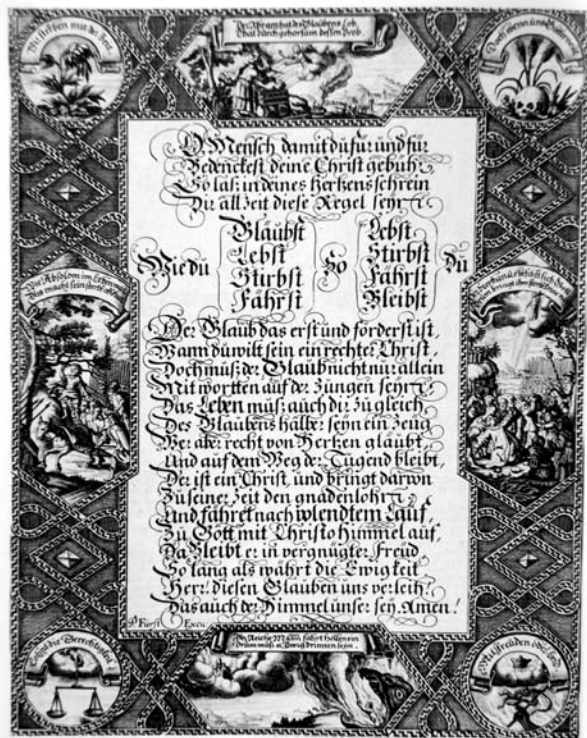 Wir sterben mit der Zeit
Der Abram hat des Glaubens Lob
That durch gehorsam dessen Prob
Doch wenn uns
O Mensch damit du für und für
Bedenckest deine Christ gebühr
So laß in deines Hertzens schrein
Dir all Zeit diese Regel seyn
Wie du
Gläubst
Lebst
Stirbst
Fährst
So
Lebst
Stirbst
Fährst
Bleibst
Du
Wie Absolom im Leben
Das macht sein
Der Glaub das erst und förderst ist,
Wann du wilt sein ein rechter Christ,
Doch muß der Glaub nicht nur allein
Mit wortten auf der Zungen seyn
Das Leben muß auch dir zu gleich
Des Glaubens halbe seyn ein Zeug
Wer aber recht von Hertzen glaubt,
Und auf dem Weg der Tugend bleibt,
Der ist ein Christ, und bringt darvon
Zu seiner Zeit den gnadenlohn
Und fähret nach volendtem Lauf,
Zu Gott mit Christo Himmel auf,
Da Bleibt er in vergnügter Freud
So lang als währt die Ewigkeit
Herr! diesen Glauben uns verleih!
Das auch der Himmel unser sey. Amen!
P. Fürst Excu
die Gerechtigkeit
Der Reiche Mann fährt höllen ein
Drum muß er Ewig drinnen seyn
Mit freuden oder Leid